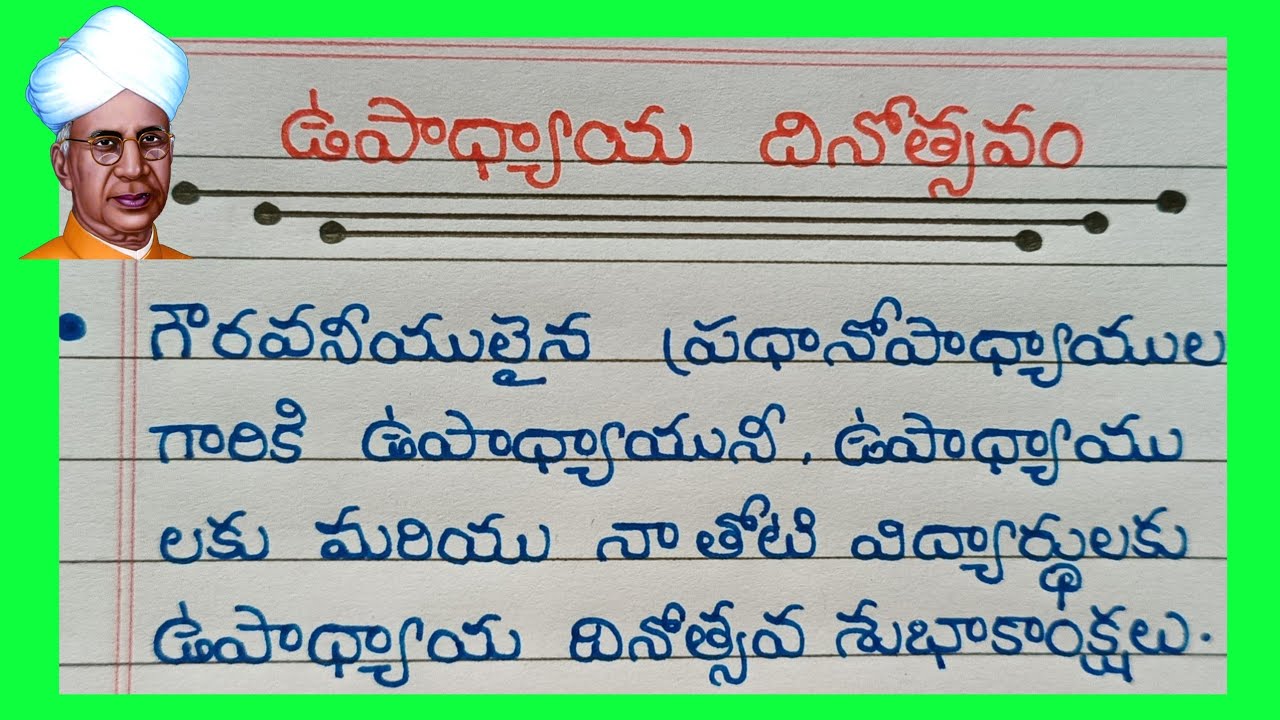 ఉపాధ్యాయ దినోత్సవం
గౌరవనీయులైన ప్రధానోపాధ్యాయుల
గారికి ఉపాధ్యాయునీ, ఉపాధ్యాయు
లకు మరియు నా తోటి విద్యార్థులకు
ఉపాధ్యాయ దినోత్సవ శుభాకాంక్షలు.